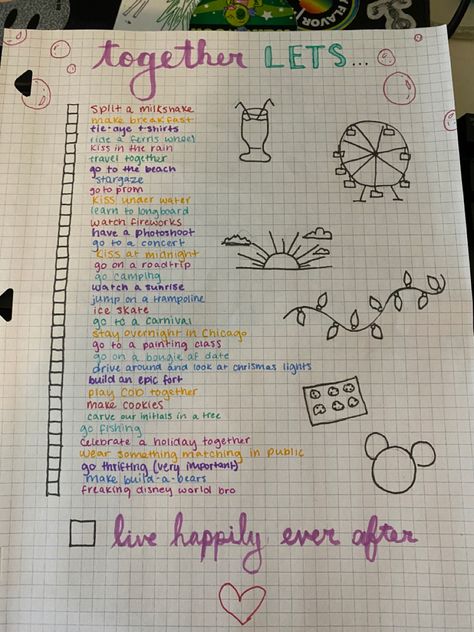 FLAVOR
together LETS...
split a milkshake
make breakfast
tie-dye t-shirts
ride a ferris wheel
kiss in the rain
travel together
go to the beach
stargaze
go to prom
kiss under water
learn to longboard
watch fireworks
have a photoshoot
go to a concert
kiss at midnight
go on a roadtrip
go camping
watch a sunrise
jump on a trampoline
ice skate
go to a carnival
stay overnight in Chicago
go to a painting class
go on a bougie af date
drive around and look at chrismas lights
build an epic fort
play COD together
make cookies
carve our initials in a tree
go fishing
celebrate a holiday together
wear something matching in public
go thrifting (very important)
make build-a-bears
freaking disney world bro
live happily ever after